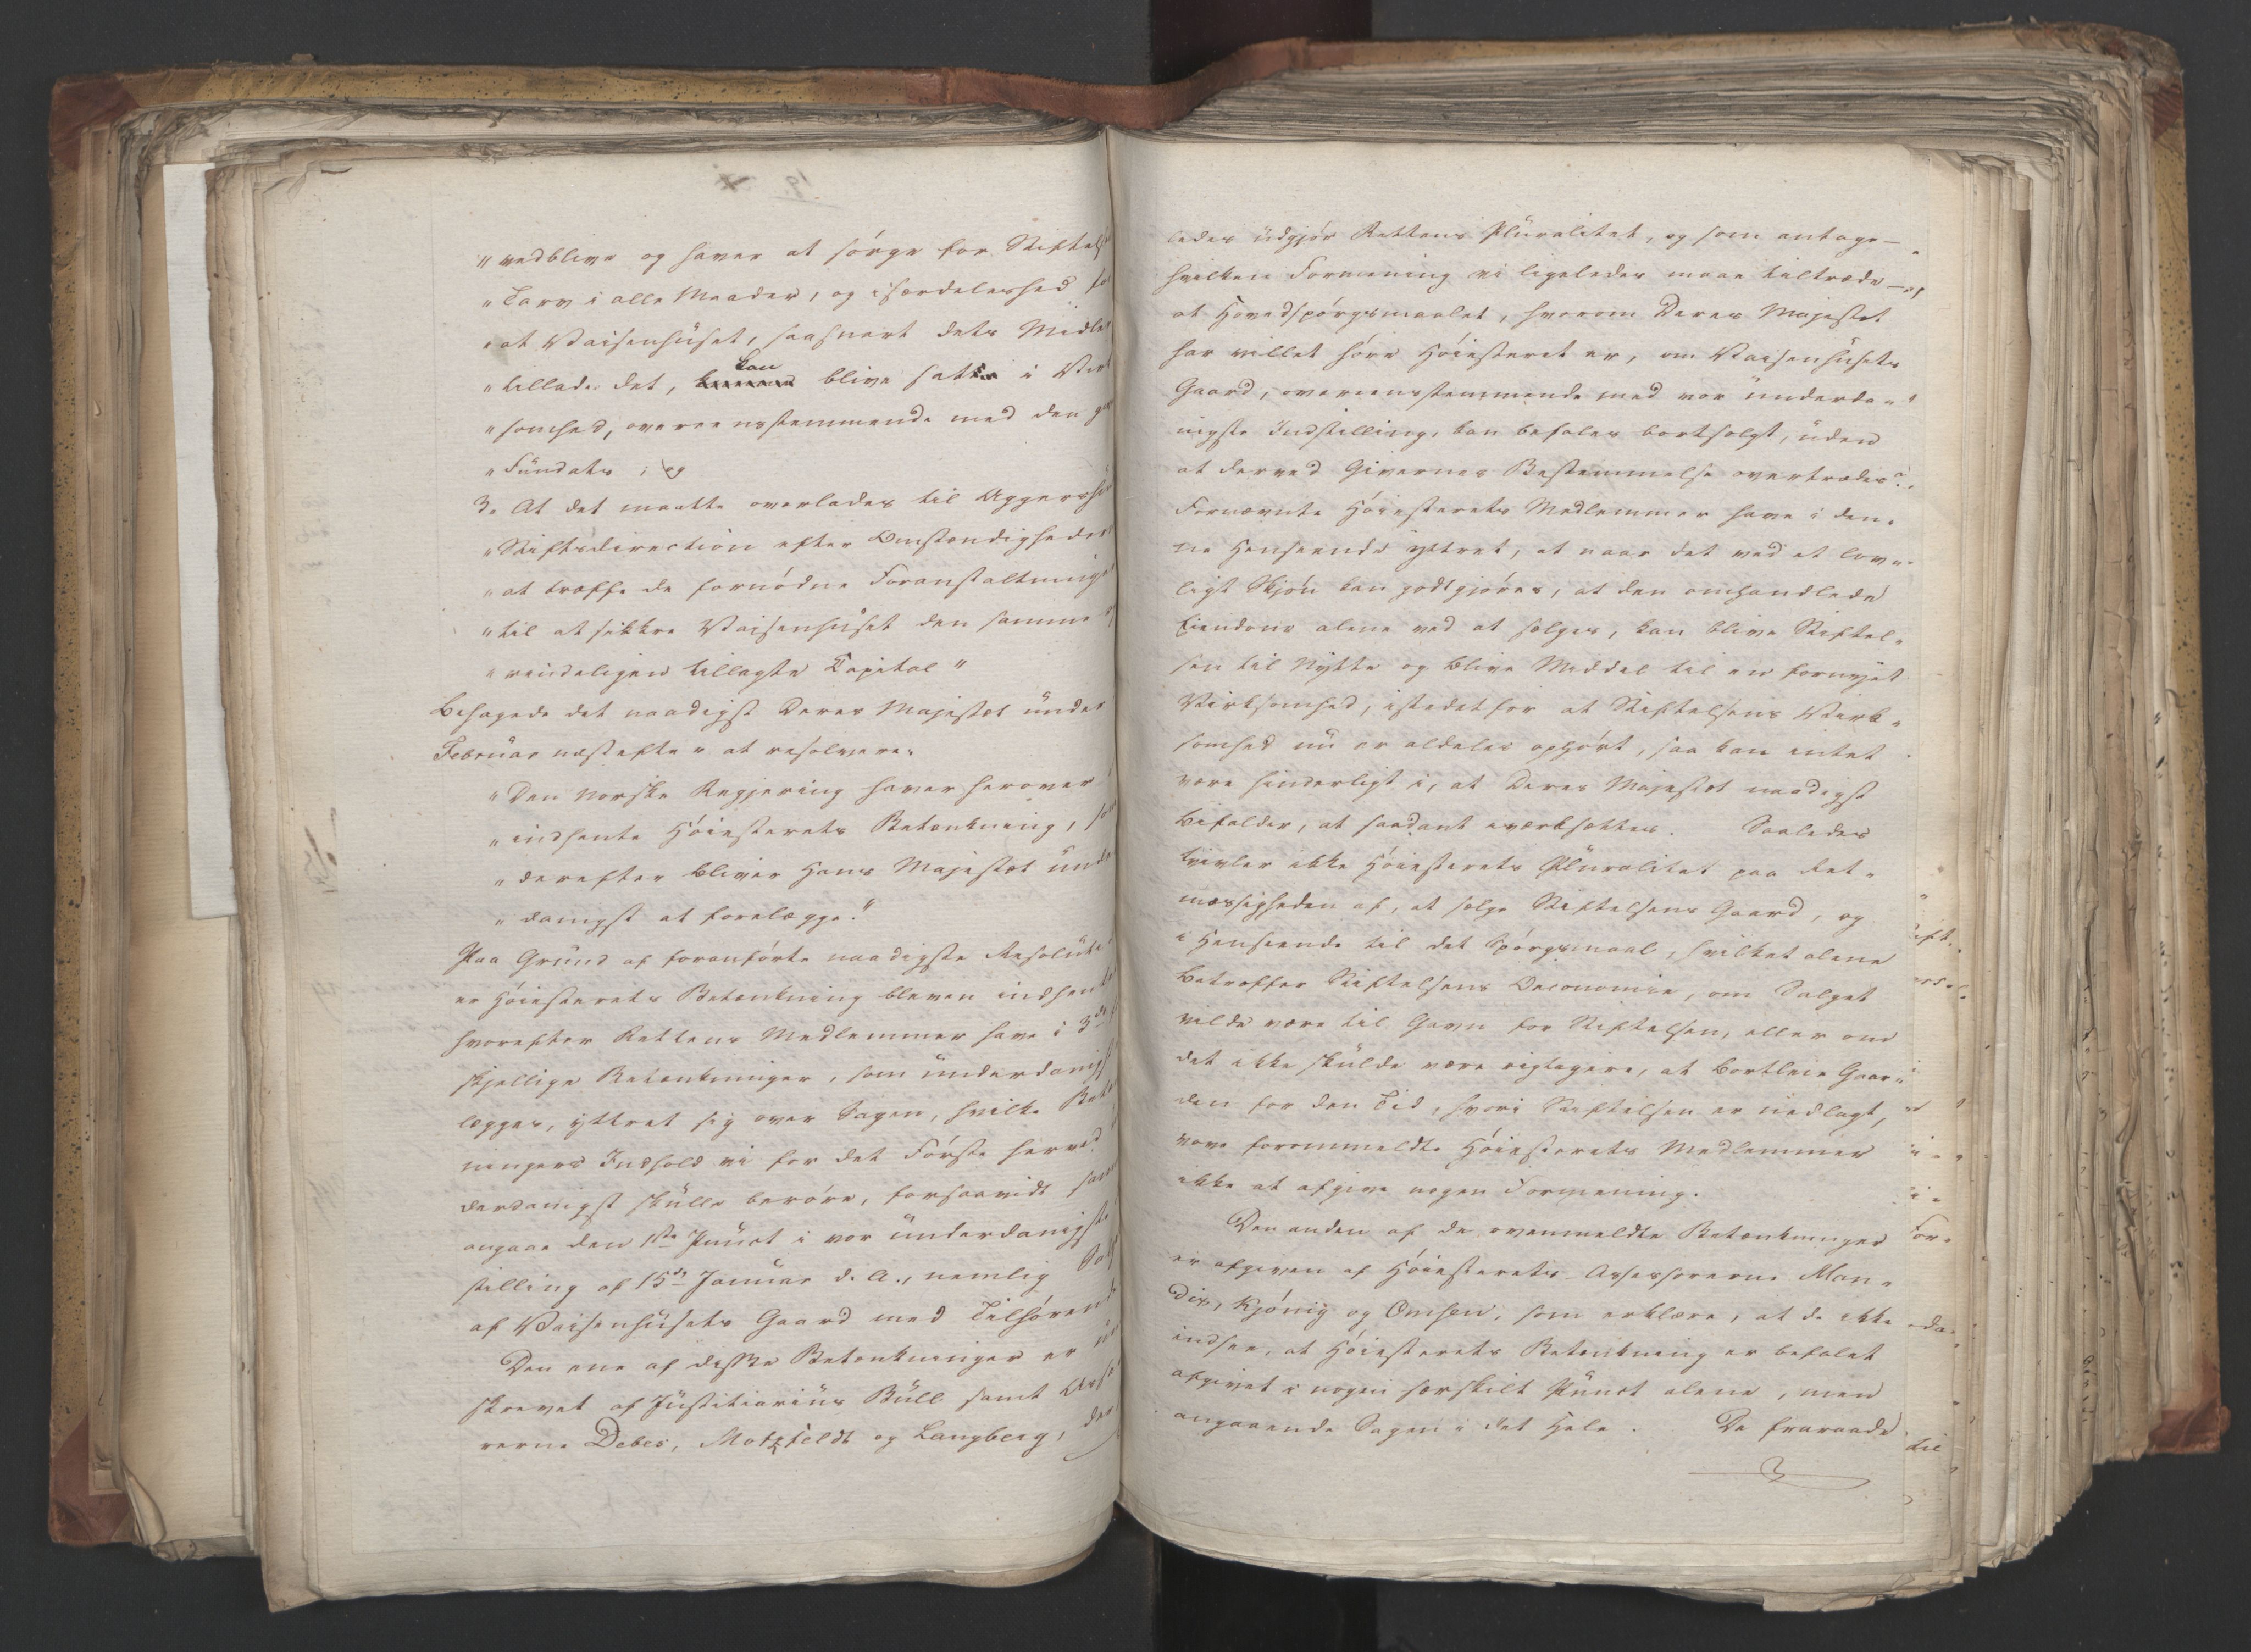 "vedblive og haver at sörge for Stiftels
"Tarv i alle Maader, og i særdeleshed for
"at Waisenhüset, saasnart dets Midler
"tillade det, kan blive sat i Virk
"somhed, overeensstemmende med den
"Fündats; og
3. At det maatte overlades til Aggershü
"Stiftsdirection efter Omstændigheder
"at træffe de fornödne Foranstaltninge
"til at sikkre Waisenhüset den samme
"rindeligen tillagte Capital"
Behagede det naadigst Deres Majestæt ünder
Februar næstefter at resolvere:
"Den norske Regjering haver herover
"indhente Höiesterets Betænkning, som
"derefter bliver Hans Majestæt ünde
"danigst at forelægge."
Paa Gründ af foranförte naadigste Resolüti
er Höiesterets Betænkning bleven indhentet
hvorefter Rettens Medlemmer have i 3de
skjellige Betænkninger, som ünderdanigst
lægges, yttret sig over Sagen, hvilke Betæ
ningers Indhold vi for det Förste herved
derdanigst skülle beröre, forsaavidt sam
angaae den 1ste Pünct i vor ünderdanigste
stilling af 15de Januar d. A., nemlig Salg
af Waisenhüsets Gaard med Tilhörende
Den ene af disse Betænkninger er ün
skrevet af Jüstitiariüs Büll samt Asse
rerne Debes, Motzfeldt og Langberg, der
ledes üdgjör Rettens Plüralitet, og som antage—
hvilken Formening vi ligeledes maae tiltræde—
at Hovedspörgsmaalet, hvorom Deres Majestæt
har villet höre Höiesteret er, om Waisenhüsets
Gaard, overeensstemmende med vor ünderda-
nigste Indstilling, kan befales bortsolgt, üden
at derved Givernes Bestemmelse overtrædes?.
Fornævnte Höiesterets Medlemmer have i den-
ne Henseende yttret, at naar det ved et lov-
ligt Skjön kan godtgjöres, at den omhandlede
Eiendom alene ved at sælges, kan blive Stiftel-
sen til Nytte og blive Middel til en fornyet
Virksomhed, istedetfor at Stiftelsens Virk-
somhed nü er aldeles ophört, saa kan intet
være hinderligt i, at Deres Majestæt naadigst
bifalder, at saadant iværksættes. Saaledes
tvivler ikke Höiesterets Plüralitet paa Ret-
mæssigheden af, at sælge Stiftelsens Gaard, og
i Henseende til det Spörgsmaal, hvilket alene
betræffer Stiftelsens Oeconomie, om Salget
vilde være til Gavn for Stiftelsen, eller om
det ikke skülde være rigtigere, at bortleie Gaar-
den for den Tid, hvori Stiftelsen er nedlagt,
vove forommeldte Höiesterets Medlemmer
ikke at afgive nogen Formening.
Den anden af de ovenmeldte Betænkninger
er afgiven af Höiesterets Assessorerne Man-
dix, Kjönig og Omsen, som erklære, at de ikke
indsee, at Höiesterets Betænkning er befalet
afgivet i nogen særskilt Pünct alene, men
angaaende Sagen i det Hele. De fraraade
til